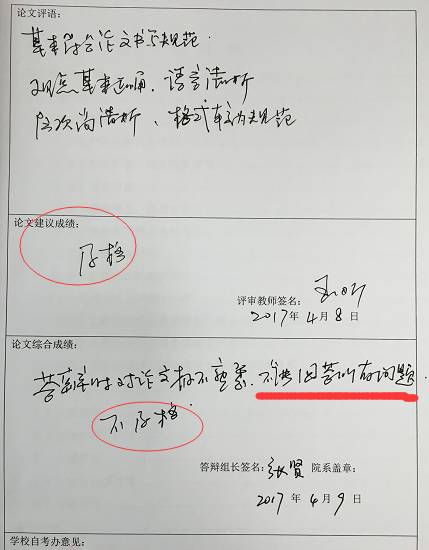 论文评语:
基本符合论文书写规范.
观点基本正确,语言清析
层次尚清析、格式较为规范
论文建议成绩:
及格
评审教师签名:
2017年4月8日
论文综合成绩:
答辩时对论文极不熟悉.不能回答所有问题
不及格
答辩组长签名:张贤 院系盖章:
2017年4月9日
学校自考办意见: